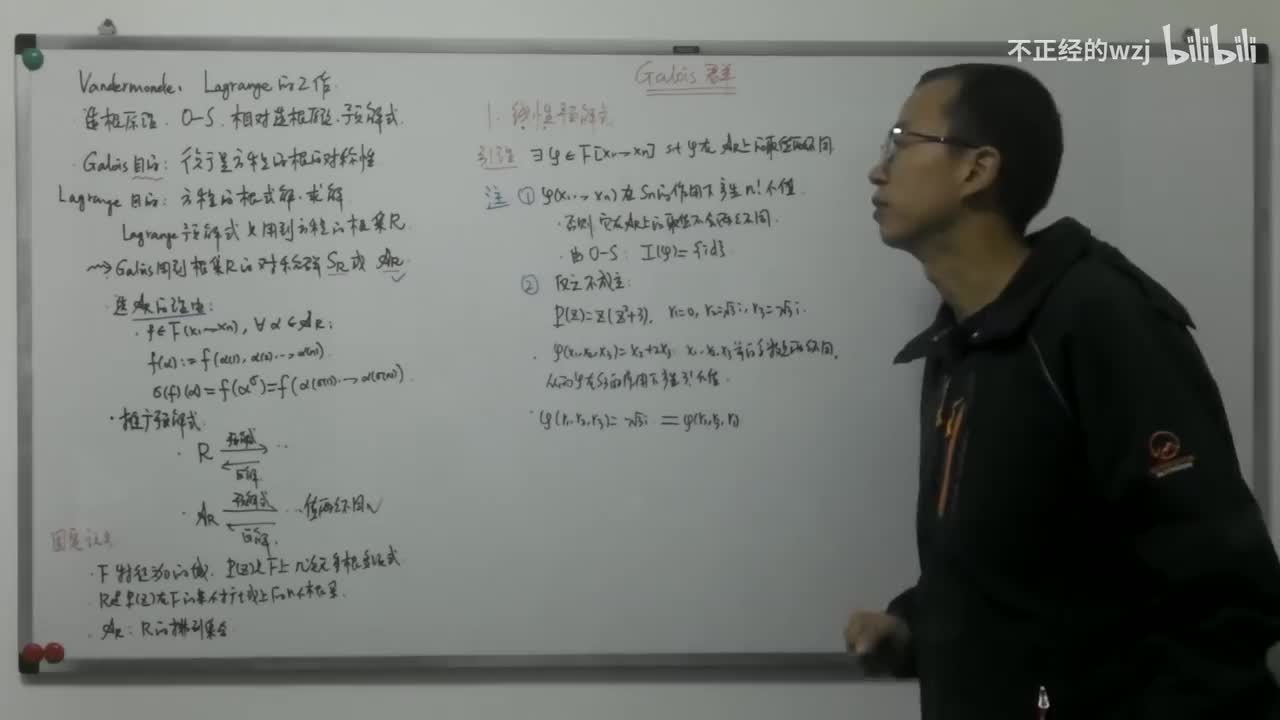 不正经的wzj bilibili
Vandermonde、Lagrange的工作.
造根原理. O-S. 相对造根原理. 预解式.
Galois目的: 衡量方程的根的对称性
Lagrange目的: 方程的根式解. 求解.
Lagrange预解式只用到方程的根集R.
⇝Galois用到根集R的对称群 S_R 或 A_R
选A_R的理由:
· f∈F(x₁⋯xₙ), ∀α∈A_R:
f(α):=f(α(1), α(2)⋯, α(n))
σ(f)(α)=f(α^σ)=f(α(σ(1))⋯→α(σ(n)))
· 推广预解式:
· R 预解式 ⋯
回解
· A_R 预解式 ⋯值两两不同
回解.
固定记号
· F 特征为0的域. P(Z)是F上n次无重根多项式
· R是P(Z)在F的某个扩域上的n个根集.
· A_R: R的排列集合
Galois群
1. 线性预解式
引理 ∃φ∈F[x₁⋯xₙ] s.t φ在A_R上的取值两两不同
注 ① φ(x₁⋯xₙ)在Sₙ的作用下产生n!个值.
· 否则 它在A_R上的取值不会两两不同.
· 由O-S: I(φ)={id}.
② 反之不成立:
P(Z)=Z(Z²+3). r₁=0, r₂=√3i, r₃=-√3i.
· φ(x₁,x₂,x₃)=x₂+2x₃
从而φ在S₃的作用下产生3!个值.
· φ(r₁,r₂,r₃)=-√3i =